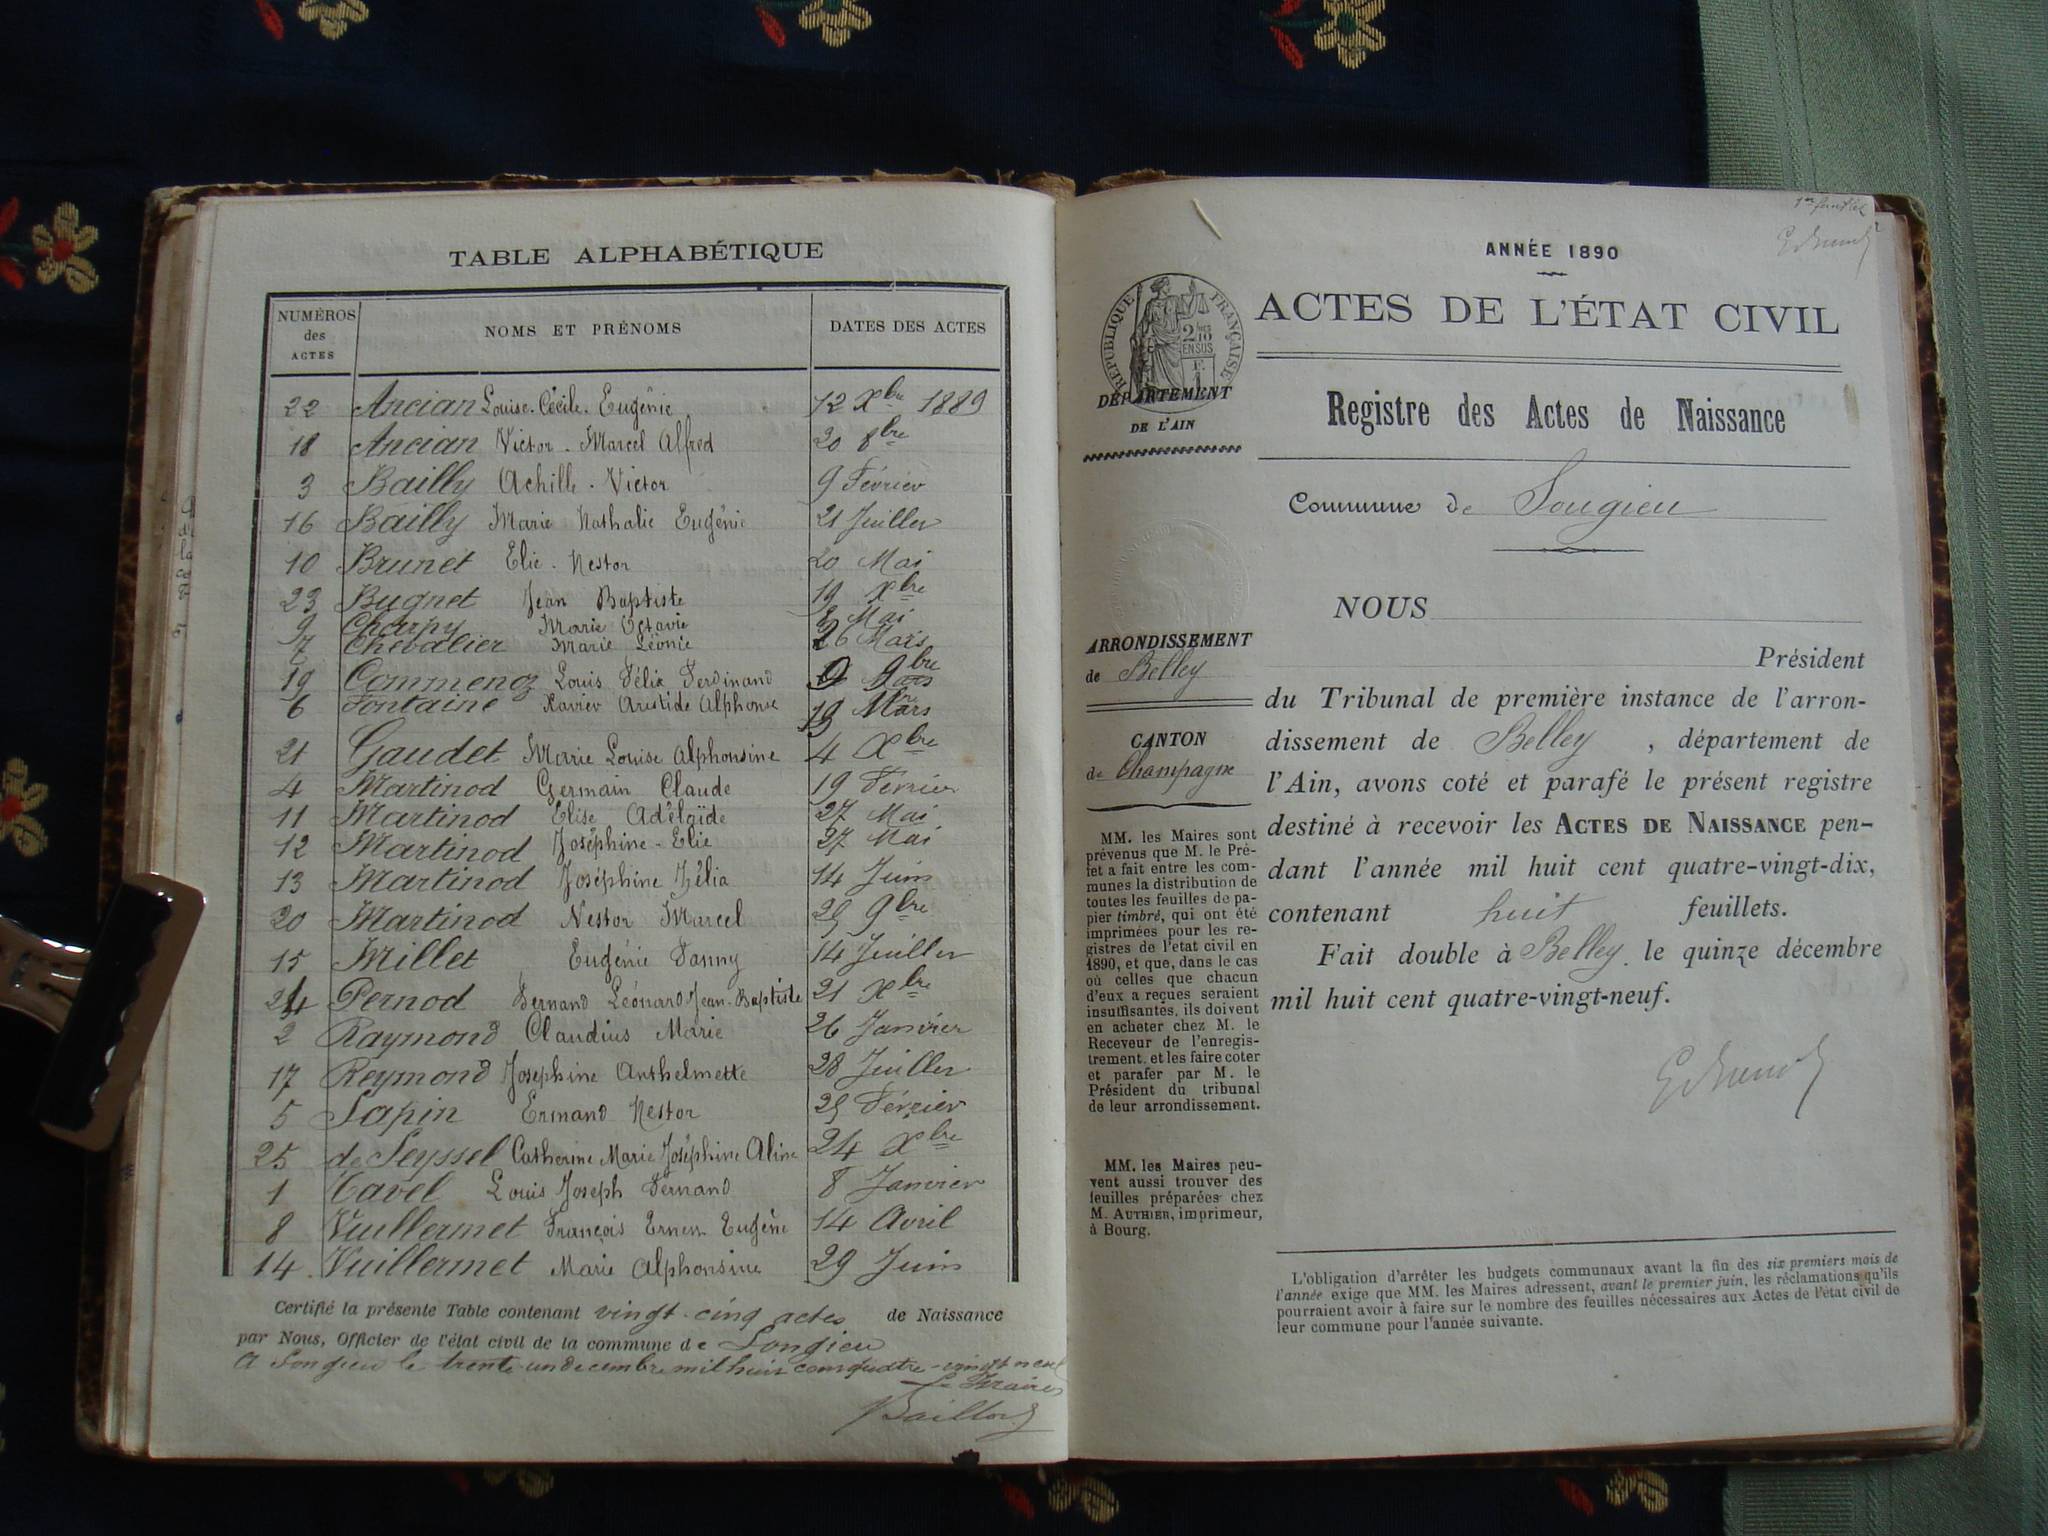 TABLE ALPHABÉTIQUE
NUMÉROS des ACTES NOMS ET PRÉNOMS DATES DES ACTES
22 Ancian Louise-Cécile-Eugénie 12 Xbre 1889
18 Ancian Victor-Marcel Alfred 20 8bre
3 Bailly Achille-Victor 9 Février
16 Bailly Marie Nathalie Eugénie 21 Juillet
10 Brunet Elie-Nestor 20 Mai
23 Bugnet Jean Baptiste 19 Xbre
9 Charpy Marie Octavie 2 Mai
7 Chevalier Marie Léonie 26 Mars
19 Commenoz Louis Félix Ferdinand 9bre
6 Fontaine Xavier Aristide Alphonse 19 Mars
21 Gaudet Marie Louise Alphonsine 4 Xbre
4 Martinod Germain Claude 19 Février
11 Martinod Elise Adélaïde 27 Mai
12 Martinod Joséphine-Elie 27 Mai
13 Martinod Joséphine Zélia 14 Juin
20 Martinod Nestor Marcel 25 9bre
15 Millet Eugénie Fanny 14 Juillet
24 Pernod Fernand Léonard Jean-Baptiste 21 Xbre
2 Raymond Claudius Marie 26 Janvier
17 Reymond Josephine Anthelmette 28 Juillet
5 Sapin Ermand Nestor 25 Février
25 de Seyssel Catherine Marie Joséphine Aline 24 Xbre
1 Tavel Louis Joseph Fernand 8 Janvier
8 Vuillermet François Ernest Eugène 14 Avril
14 Vuillermet Marie Alphonsine 29 Juin
Certifié la présente Table contenant vingt-cinq actes de Naissance
par Nous, Officier de l'état civil de la commune de Songieu
A Songieu le trente un décembre mil huit cent quatre-vingt neuf
Le Maire
1er feuillet
ANNÉE 1890
ACTES DE L'ÉTAT CIVIL
RÉPUBLIQUE FRANÇAISE
DÉPARTEMENT
DE L'AIN
Registre des Actes de Naissance
Commune de Songieu
NOUS
Président
du Tribunal de première instance de l'arron-
dissement de Belley, département de
l'Ain, avons coté et parafé le présent registre
destiné à recevoir les ACTES DE NAISSANCE pen-
dant l'année mil huit cent quatre-vingt-dix,
contenant huit feuillets.
Fait double à Belley, le quinze décembre
mil huit cent quatre-vingt-neuf.
ARRONDISSEMENT
de Belley
CANTON
de Champagne
MM. les Maires sont
prévenus que M. le Pré-
fet a fait entre les com-
munes la distribution de
toutes les feuilles de pa-
pier timbré, qui ont été
imprimées pour les re-
gistres de l'état civil en
1890, et que, dans le cas
où celles que chacun
d'eux a reçues seraient
insuffisantes, ils doivent
en acheter chez M. le
Receveur de l'enregis-
trement, et les faire coter
et parafer par M. le
Président du tribunal
de leur arrondissement.
MM. les Maires peu-
vent aussi trouver des
feuilles préparées chez
M. AUTHIER, imprimeur,
à Bourg.
L'obligation d'arrêter les budgets communaux avant la fin des six premiers mois de
l'année exige que MM. les Maires adressent, avant le premier juin, les réclamations qu'ils
pourraient avoir à faire sur le nombre des feuilles nécessaires aux Actes de l'état civil de
leur commune pour l'année suivante.